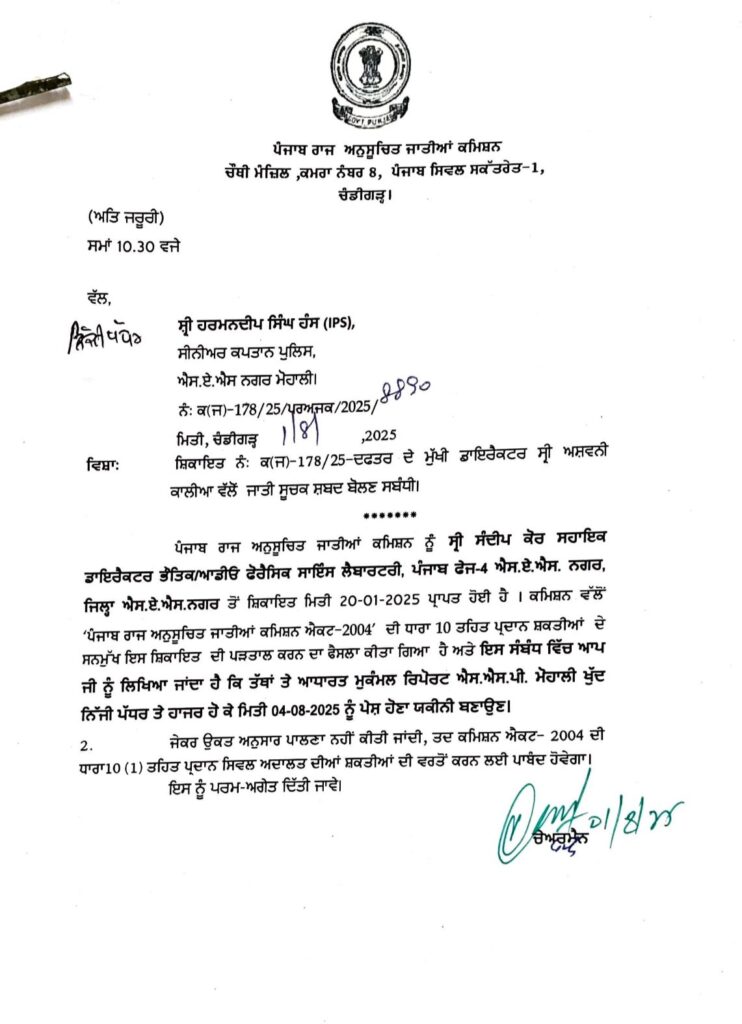 GOVT. PUNJAB
ਪੰਜਾਬ ਰਾਜ ਅਨੁਸੂਚਿਤ ਜਾਤੀਆਂ ਕਮਿਸ਼ਨ
ਚੌਥੀ ਮੰਜ਼ਿਲ ,ਕਮਰਾ ਨੰਬਰ 8, ਪੰਜਾਬ ਸਿਵਲ ਸਕੱਤਰੇਤ-1,
ਚੰਡੀਗੜ੍ਹ।
(ਅਤਿ ਜਰੂਰੀ)
ਸਮਾਂ 10.30 ਵਜੇ
ਵੱਲ,
ਨਿੱਜੀ ਪੱਧਰ
ਸ਼੍ਰੀ ਹਰਮਨਦੀਪ ਸਿੰਘ ਹੰਸ (IPS),
ਸੀਨੀਅਰ ਕਪਤਾਨ ਪੁਲਿਸ,
ਐਸ.ਏ.ਐਸ ਨਗਰ ਮੋਹਾਲੀ।
ਨੰ: ਕ(ਜ)-178/25/ਪਰਅਜਕ/2025/
ਮਿਤੀ, ਚੰਡੀਗੜ੍ਹ 1/8/ ,2025
ਵਿਸ਼ਾ: ਸ਼ਿਕਾਇਤ ਨੰ: ਕ(ਜ)-178/25-ਦਫਤਰ ਦੇ ਮੁੱਖੀ ਡਾਇਰੈਕਟਰ ਸ੍ਰੀ ਅਸ਼ਵਨੀ
ਕਾਲੀਆ ਵੱਲੋਂ ਜਾਤੀ ਸੂਚਕ ਸ਼ਬਦ ਬੋਲਣ ਸਬੰਧੀ।
*******
ਪੰਜਾਬ ਰਾਜ ਅਨੁਸੂਚਿਤ ਜਾਤੀਆਂ ਕਮਿਸ਼ਨ ਨੂੰ ਸ੍ਰੀ ਸੰਦੀਪ ਕੋਰ ਸਹਾਇਕ
ਡਾਇਰੈਕਟਰ ਭੌਤਿਕ/ਆਡੀਓ ਫੋਰੈਸਿਕ ਸਾਇੰਸ ਲੈਬਾਰਟਰੀ, ਪੰਜਾਬ ਫੇਜ-4 ਐਸ.ਏ.ਐਸ. ਨਗਰ,
ਜਿਲ੍ਹਾ ਐਸ.ਏ.ਐਸ.ਨਗਰ ਤੋਂ ਸ਼ਿਕਾਇਤ ਮਿਤੀ 20-01-2025 ਪ੍ਰਾਪਤ ਹੋਈ ਹੈ । ਕਮਿਸ਼ਨ ਵੱਲੋਂ
'ਪੰਜਾਬ ਰਾਜ ਅਨੁਸੂਚਿਤ ਜਾਤੀਆਂ ਕਮਿਸ਼ਨ ਐਕਟ-2004' ਦੀ ਧਾਰਾ 10 ਤਹਿਤ ਪ੍ਰਦਾਨ ਸ਼ਕਤੀਆਂ ਦੇ
ਸਨਮੁੱਖ ਇਸ ਸ਼ਿਕਾਇਤ ਦੀ ਪੜਤਾਲ ਕਰਨ ਦਾ ਫੈਸਲਾ ਕੀਤਾ ਗਿਆ ਹੈ ਅਤੇ ਇਸ ਸੰਬੰਧ ਵਿੱਚ ਆਪ
ਜੀ ਨੂੰ ਲਿਖਿਆ ਜਾਂਦਾ ਹੈ ਕਿ ਤੱਥਾਂ ਤੇ ਆਧਾਰਤ ਮੁਕੰਮਲ ਰਿਪੋਰਟ ਐਸ.ਐਸ.ਪੀ. ਮੋਹਾਲੀ ਖੁੱਦ
ਨਿੱਜੀ ਪੱਧਰ ਤੇ ਹਾਜਰ ਹੋ ਕੇ ਮਿਤੀ 04-08-2025 ਨੂੰ ਪੇਸ਼ ਹੋਣਾ ਯਕੀਨੀ ਬਣਾਉਣ।
2. ਜੇਕਰ ਉਕਤ ਅਨੁਸਾਰ ਪਾਲਣਾ ਨਹੀਂ ਕੀਤੀ ਜਾਂਦੀ, ਤਦ ਕਮਿਸ਼ਨ ਐਕਟ- 2004 ਦੀ
ਧਾਰਾ10 (1) ਤਹਿਤ ਪ੍ਰਦਾਨ ਸਿਵਲ ਅਦਾਲਤ ਦੀਆਂ ਸ਼ਕਤੀਆਂ ਦੀ ਵਰਤੋਂ ਕਰਨ ਲਈ ਪਾਬੰਦ ਹੋਵੇਗਾ।
ਇਸ ਨੂੰ ਪਰਮ-ਅਗੇਤ ਦਿੱਤੀ ਜਾਵੇ।
01/8/25
ਚੇਅਰਮੈਨ